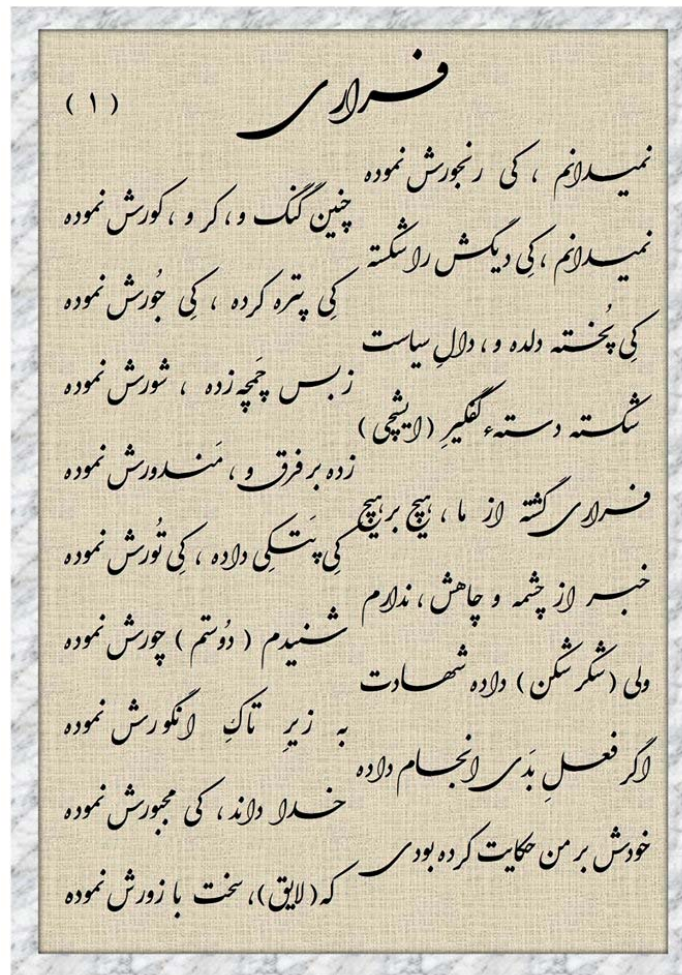 فراری
(۱)
نمیدانم ، کی رنجورش نموده
چنین گنگ و ، کر و ، کورش نموده
نمیدانم ، کِی دیگش را شکسته
کِی پتره کرده ، کِی جُورش نموده
کِی پُخته دلده و ، دالِ سیاست
زبس چَمچه زده ، شورش نموده
شکسته دستهء کفگیرِ (ایشچی)
زده بر فرق و ، مَندورش نموده
فراری گشته از ما ، هیچ بر هیچ
کِی پَتکی داده ، کِی تُورش نموده
خبر از چشمه و چاهش ، ندارم
شنیدم ( دُوستم ) چورش نموده
ولی (شکر شکن) داده شهادت
به زیرِ تاکِ انگورش نموده
اگر فعلِ بَدی انجام داده
خدا داند ، کی مجبورش نموده
خودش بر من حکایت کرده بودی
که (لایق)، سخت با زورش نموده